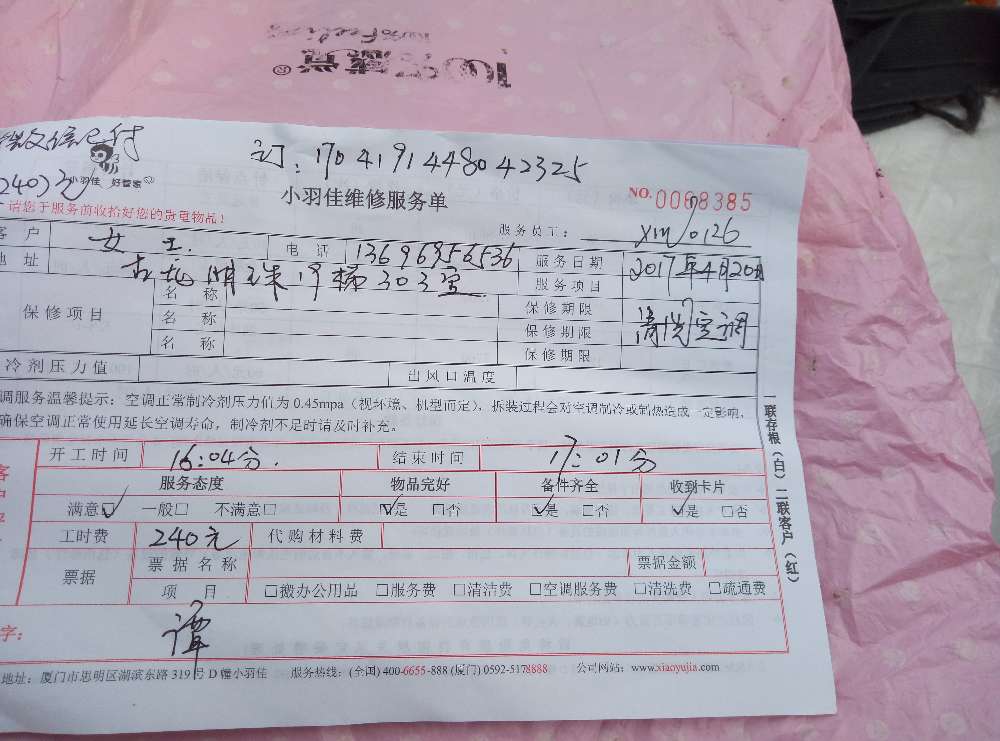 感觉
Feeling
微信已付
订:170419144804 2325
240元
小羽佳 好管家
小羽佳维修服务单
NO.0068385
请您于服务前收拾好您的贵重物品!
服务员工: xm0126
客户 女士 电话 13696956536 服务日期 2017年4月20日
地址 明珠 栋303室 服务项目 清洗空调
保修项目 名称 保修期限
名称 保修期限
名称 保修期限
冷剂压力值 出风口温度
调服务温馨提示:空调正常制冷剂压力值为0.45mpa(视环境、机型而定),拆装过程会对空调制冷或制热造成一定影响,
确保空调正常使用延长空调寿命,制冷剂不足时请及时补充。
开工时间 16:04分. 结束时间 17:01分
服务态度 物品完好 备件齐全 收到卡片
满意☑ 一般□ 不满意□ ☑是 □否 ☑是 □否 ☑是 □否
工时费 240元 代购材料费
票据 票据名称 票据金额
项目 □搬办公用品 □服务费 □清洁费 □空调服务费 □清洗费 □疏通费
字: 谭
地址:厦门市思明区湖滨东路319号D幢小羽佳 服务热线:(全国)400-6655-888(厦门)0592-5178888 公司网站:www.xiaoyujia.com
一联存根(白)二联客户(红)